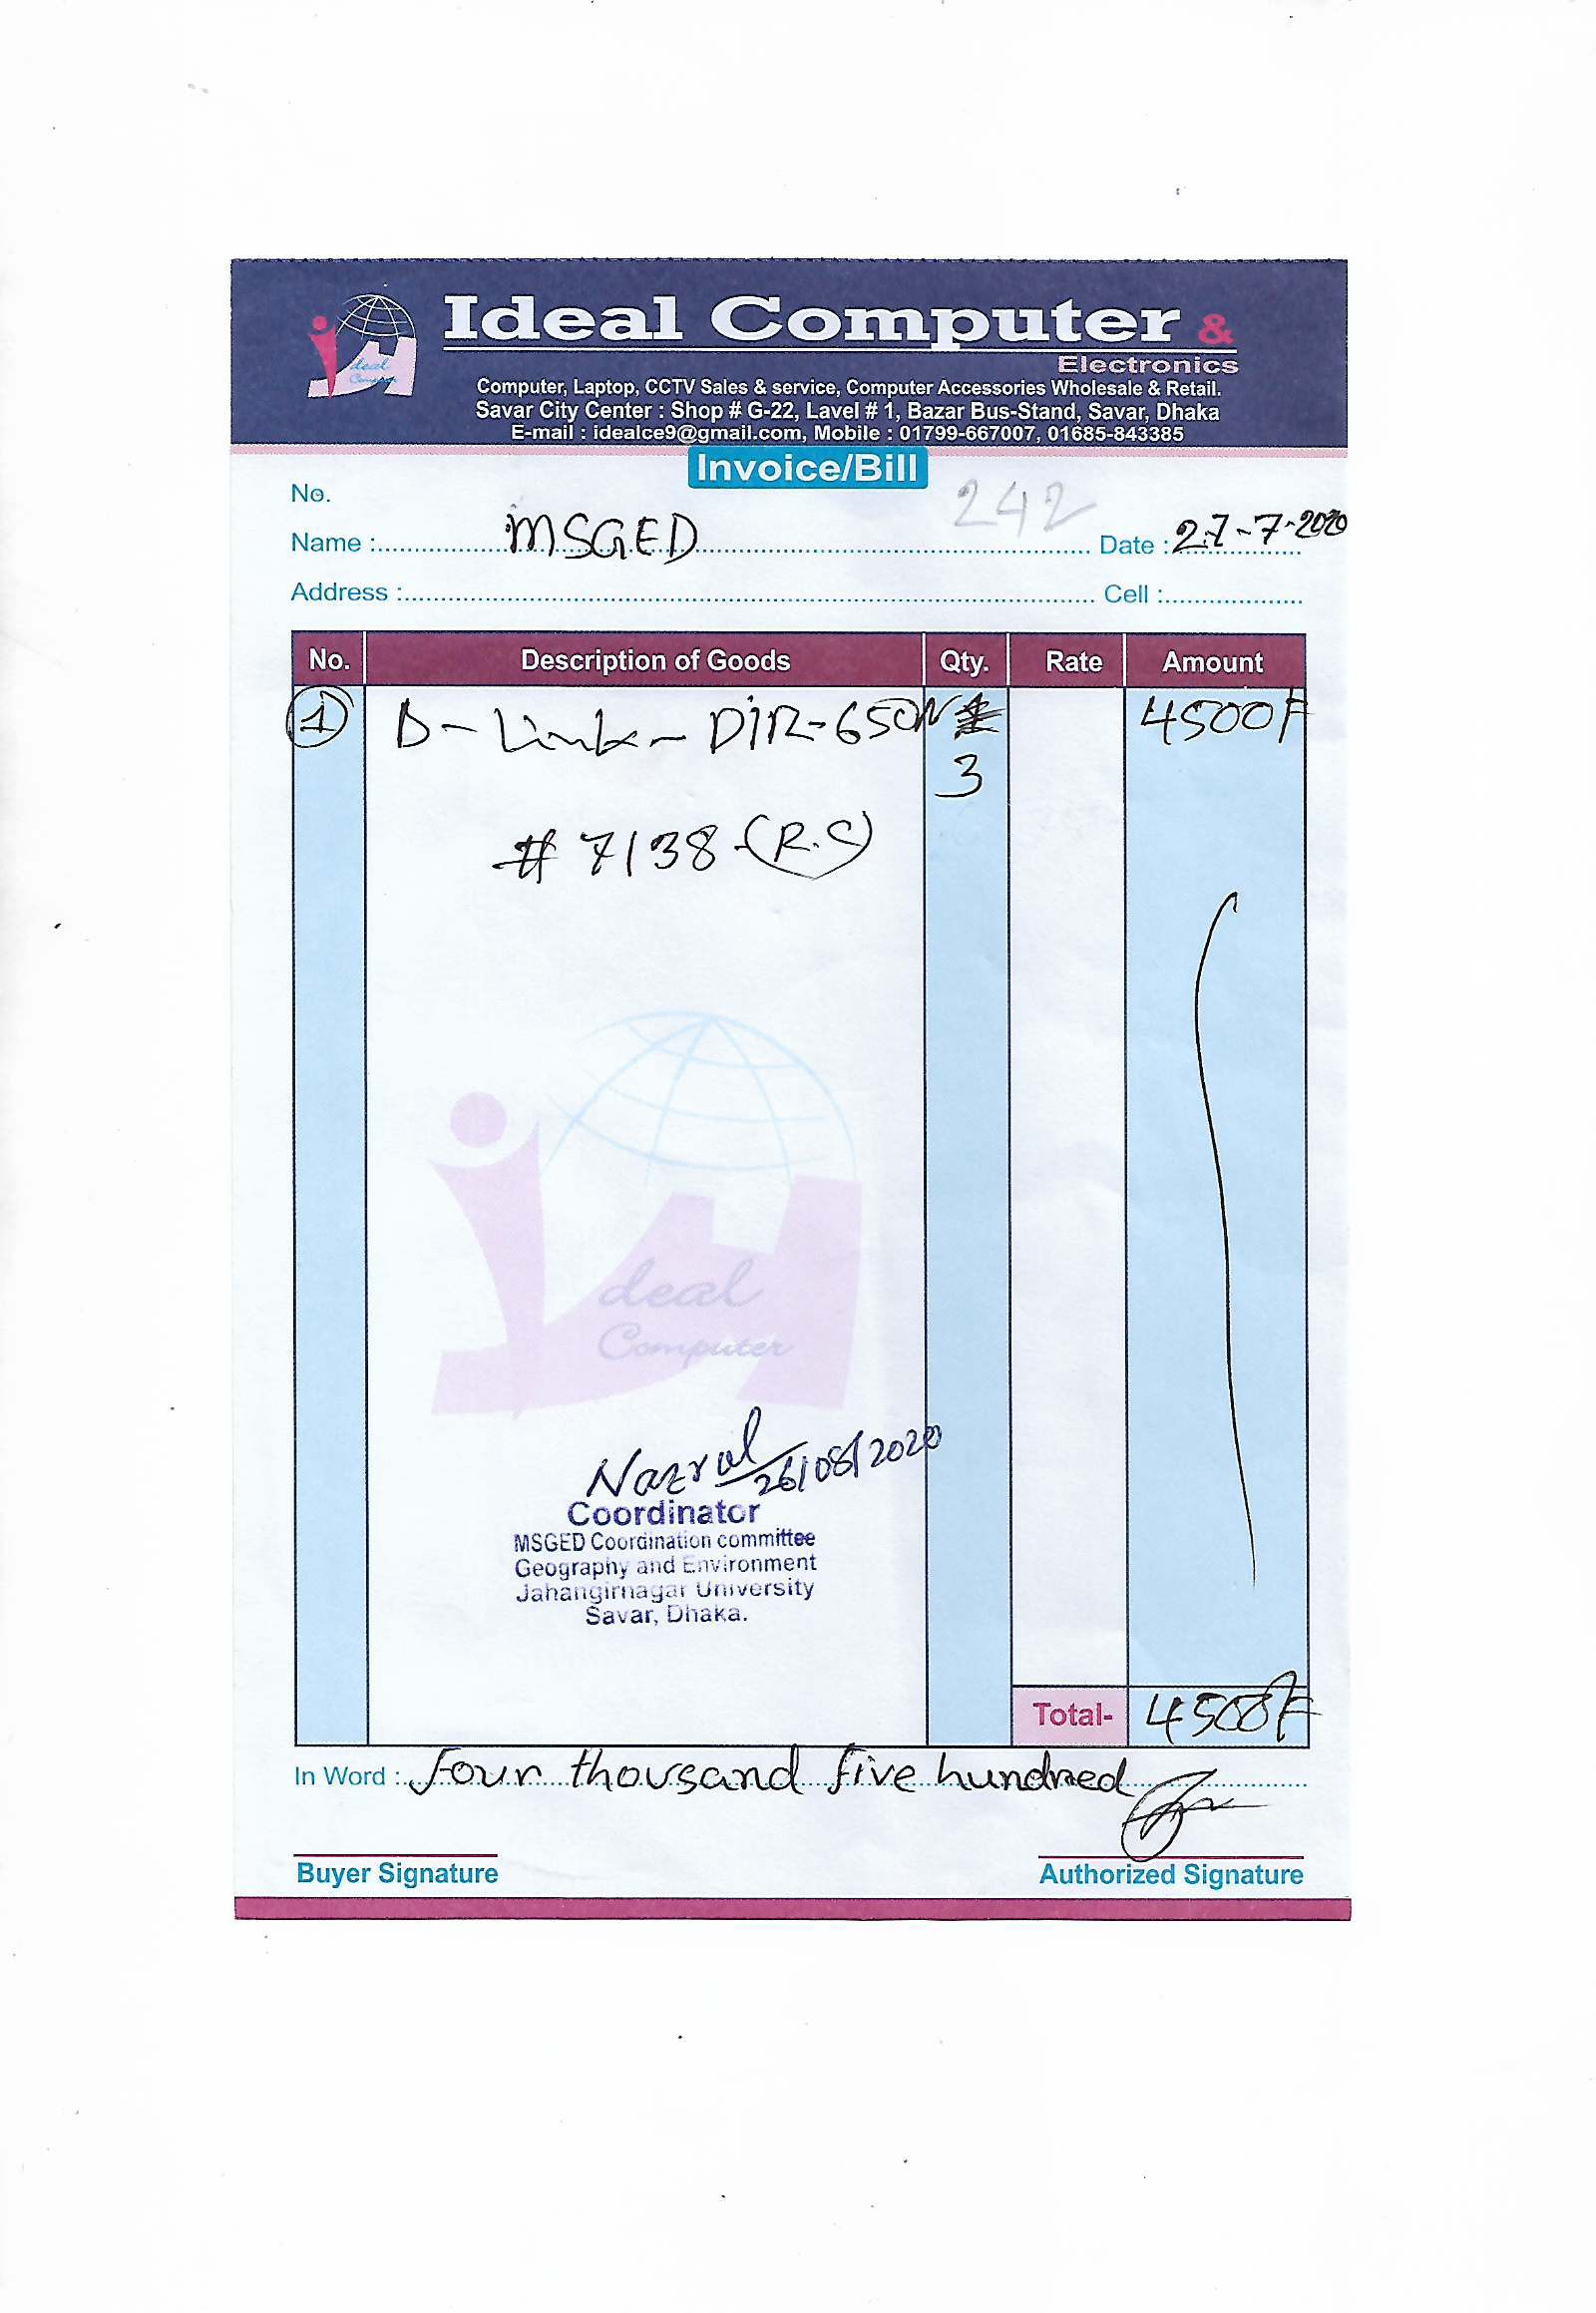 Ideal Computer &
Electronics
ideal
Computer
Computer, Laptop, CCTV Sales & service, Computer Accessories Wholesale & Retail.
Savar City Center : Shop # G-22, Lavel # 1, Bazar Bus-Stand, Savar, Dhaka
E-mail : idealce9@gmail.com, Mobile : 01799-667007, 01685-843385
Invoice/Bill
No. 242
Name : MSGED Date : 27-7-2020
Address : Cell :
No. Description of Goods Qty. Rate Amount
1 D-Link-DIR-650N 4500/=
3
# 7138 (R.S)
ideal
Computer
Nazrul 26/08/2020
Coordinator
MSGED Coordination committee
Geography and Environment
Jahangirnagar University
Savar, Dhaka.
Total- 4500/=
In Word : four thousand five hundred
Buyer Signature Authorized Signature